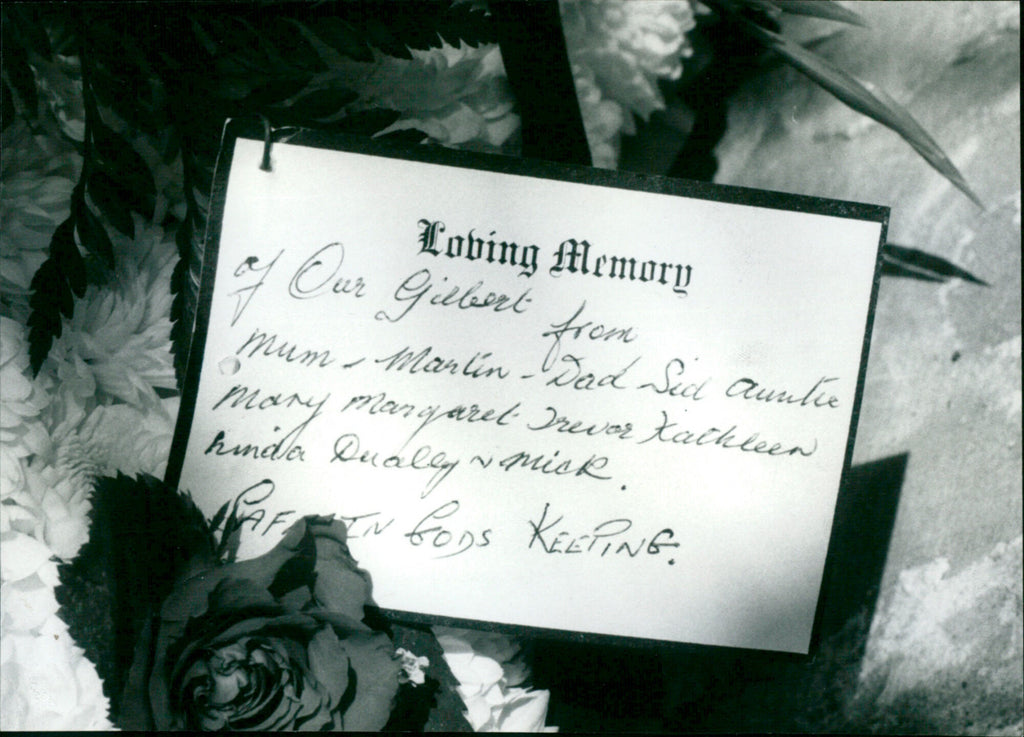 Loving Memory
of Our Gilbert from
Mum - Martin - Dad Sid Auntie
Mary Margaret Trevor Kathleen
Linda Dually & Mick.
SAFE IN GODS KEEPING.